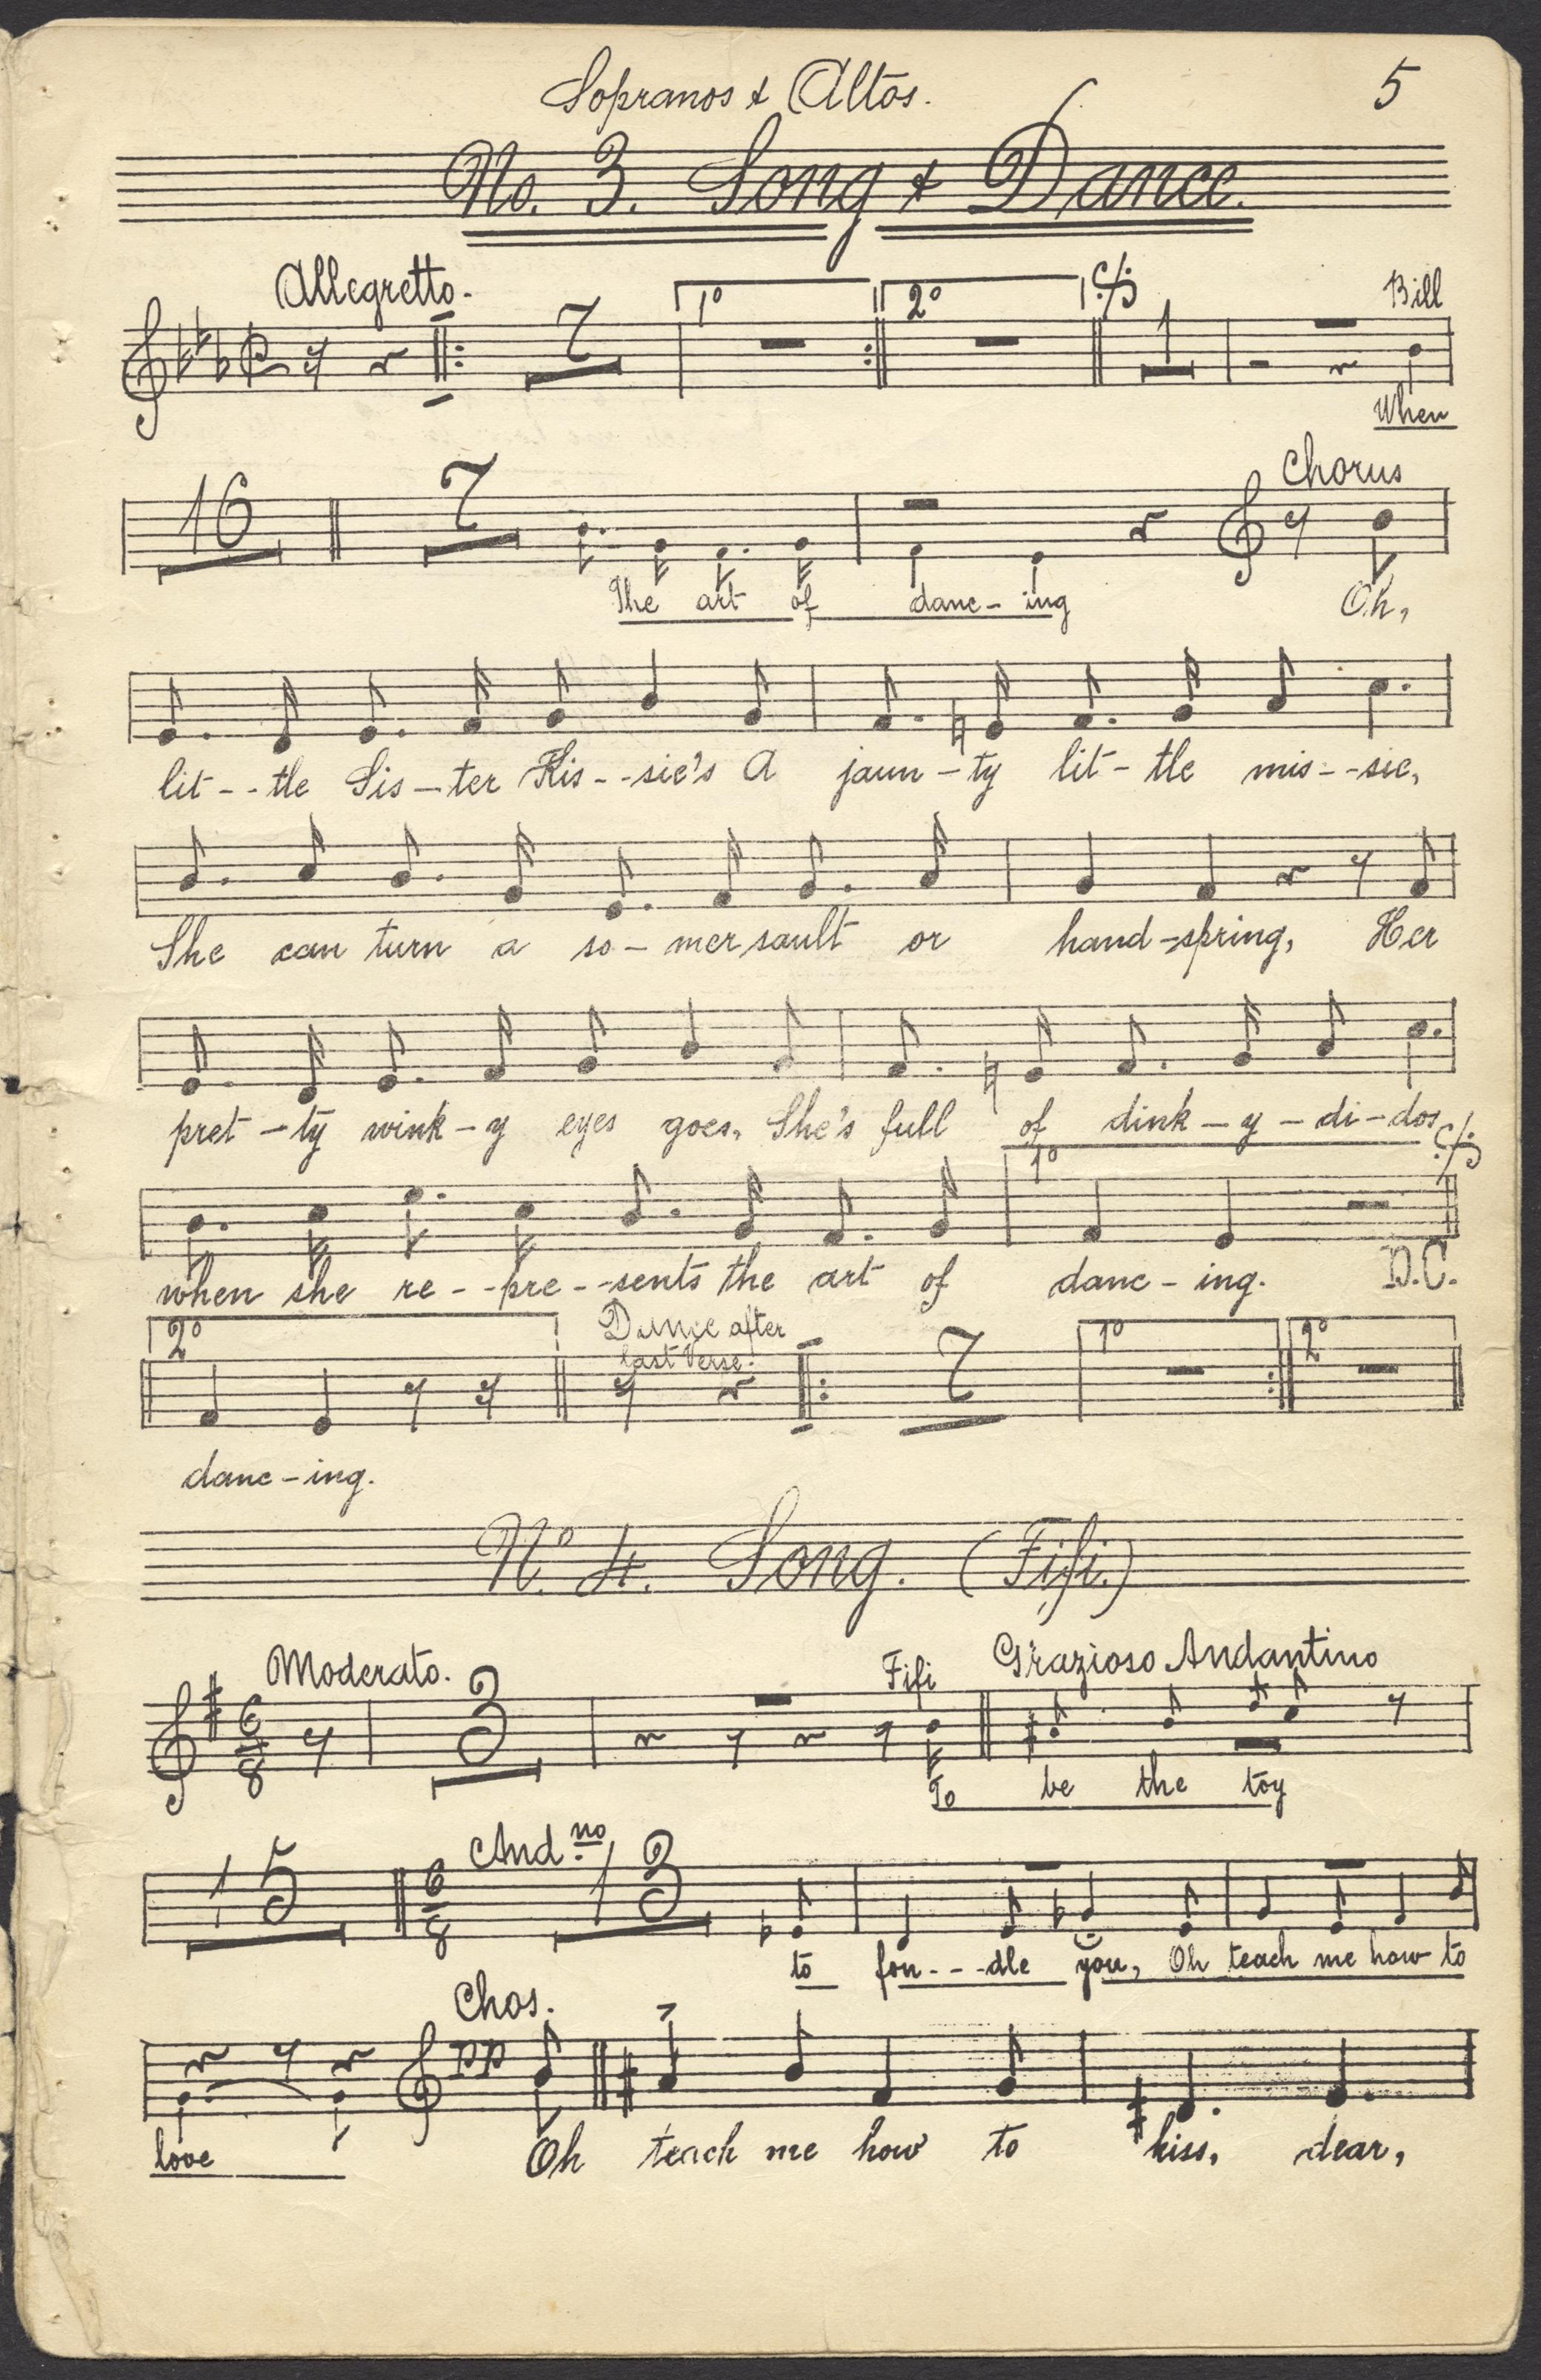 Sopranos & Altos. 5
No. 3. Song & Dance.
Allegretto. 7 1º 2º 1 Bill
When
16 7 Chorus
The art of danc-ing Oh,
lit--tle Sis-ter Kis--sie's A jaun-ty lit-tle mis--sie,
She can turn a so-mer sault or hand-spring, Her
pret-ty wink-y eyes goes, She's full of dink-y-di-dos
1º
when she re--pre--sents the art of danc-ing. D.C.
2º Dance after last Verse. 7 1º 2º
danc-ing.
Nº 4. Song. (Fifi.)
Moderato. 6/8 3 Fifi Grazioso Andantino
To be the toy
15 6/8 And.no 13
to fon---dle you, Oh teach me how to
Chos. pp
love Oh teach me how to kiss, dear,